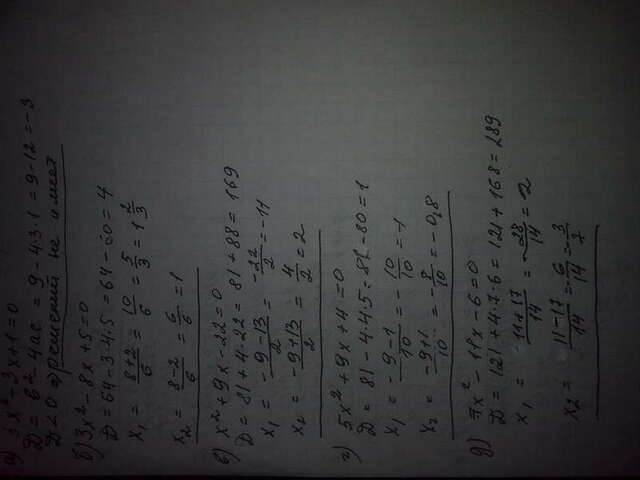 а) 3x² - 3x + 1 = 0
D = b² - 4ac = 9 - 4·3·1 = 9 - 12 = -3
D < 0 решений не имеет
б) 3x² - 8x + 5 = 0
D = 64 - 3·4·5 = 64 - 60 = 4
x₁ = (8+2)/6 = 10/6 = 5/3 = 1 2/3
x₂ = (8-2)/6 = 6/6 = 1
в) x² + 9x - 22 = 0
D = 81 + 4·22 = 81 + 88 = 169
x₁ = (-9-13)/2 = -22/2 = -11
x₂ = (-9+13)/2 = 4/2 = 2
г) 5x² + 9x + 4 = 0
D = 81 - 4·4·5 = 81 - 80 = 1
x₁ = (-9-1)/10 = -10/10 = -1
x₂ = (-9+1)/10 = -8/10 = -0,8
д) 7x² - 11x - 6 = 0
D = 121 + 4·7·6 = 121 + 168 = 289
x₁ = (11+17)/14 = 28/14 = 2
x₂ = (11-17)/14 = -6/14 = -3/7